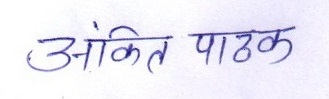 अंकित पाठक